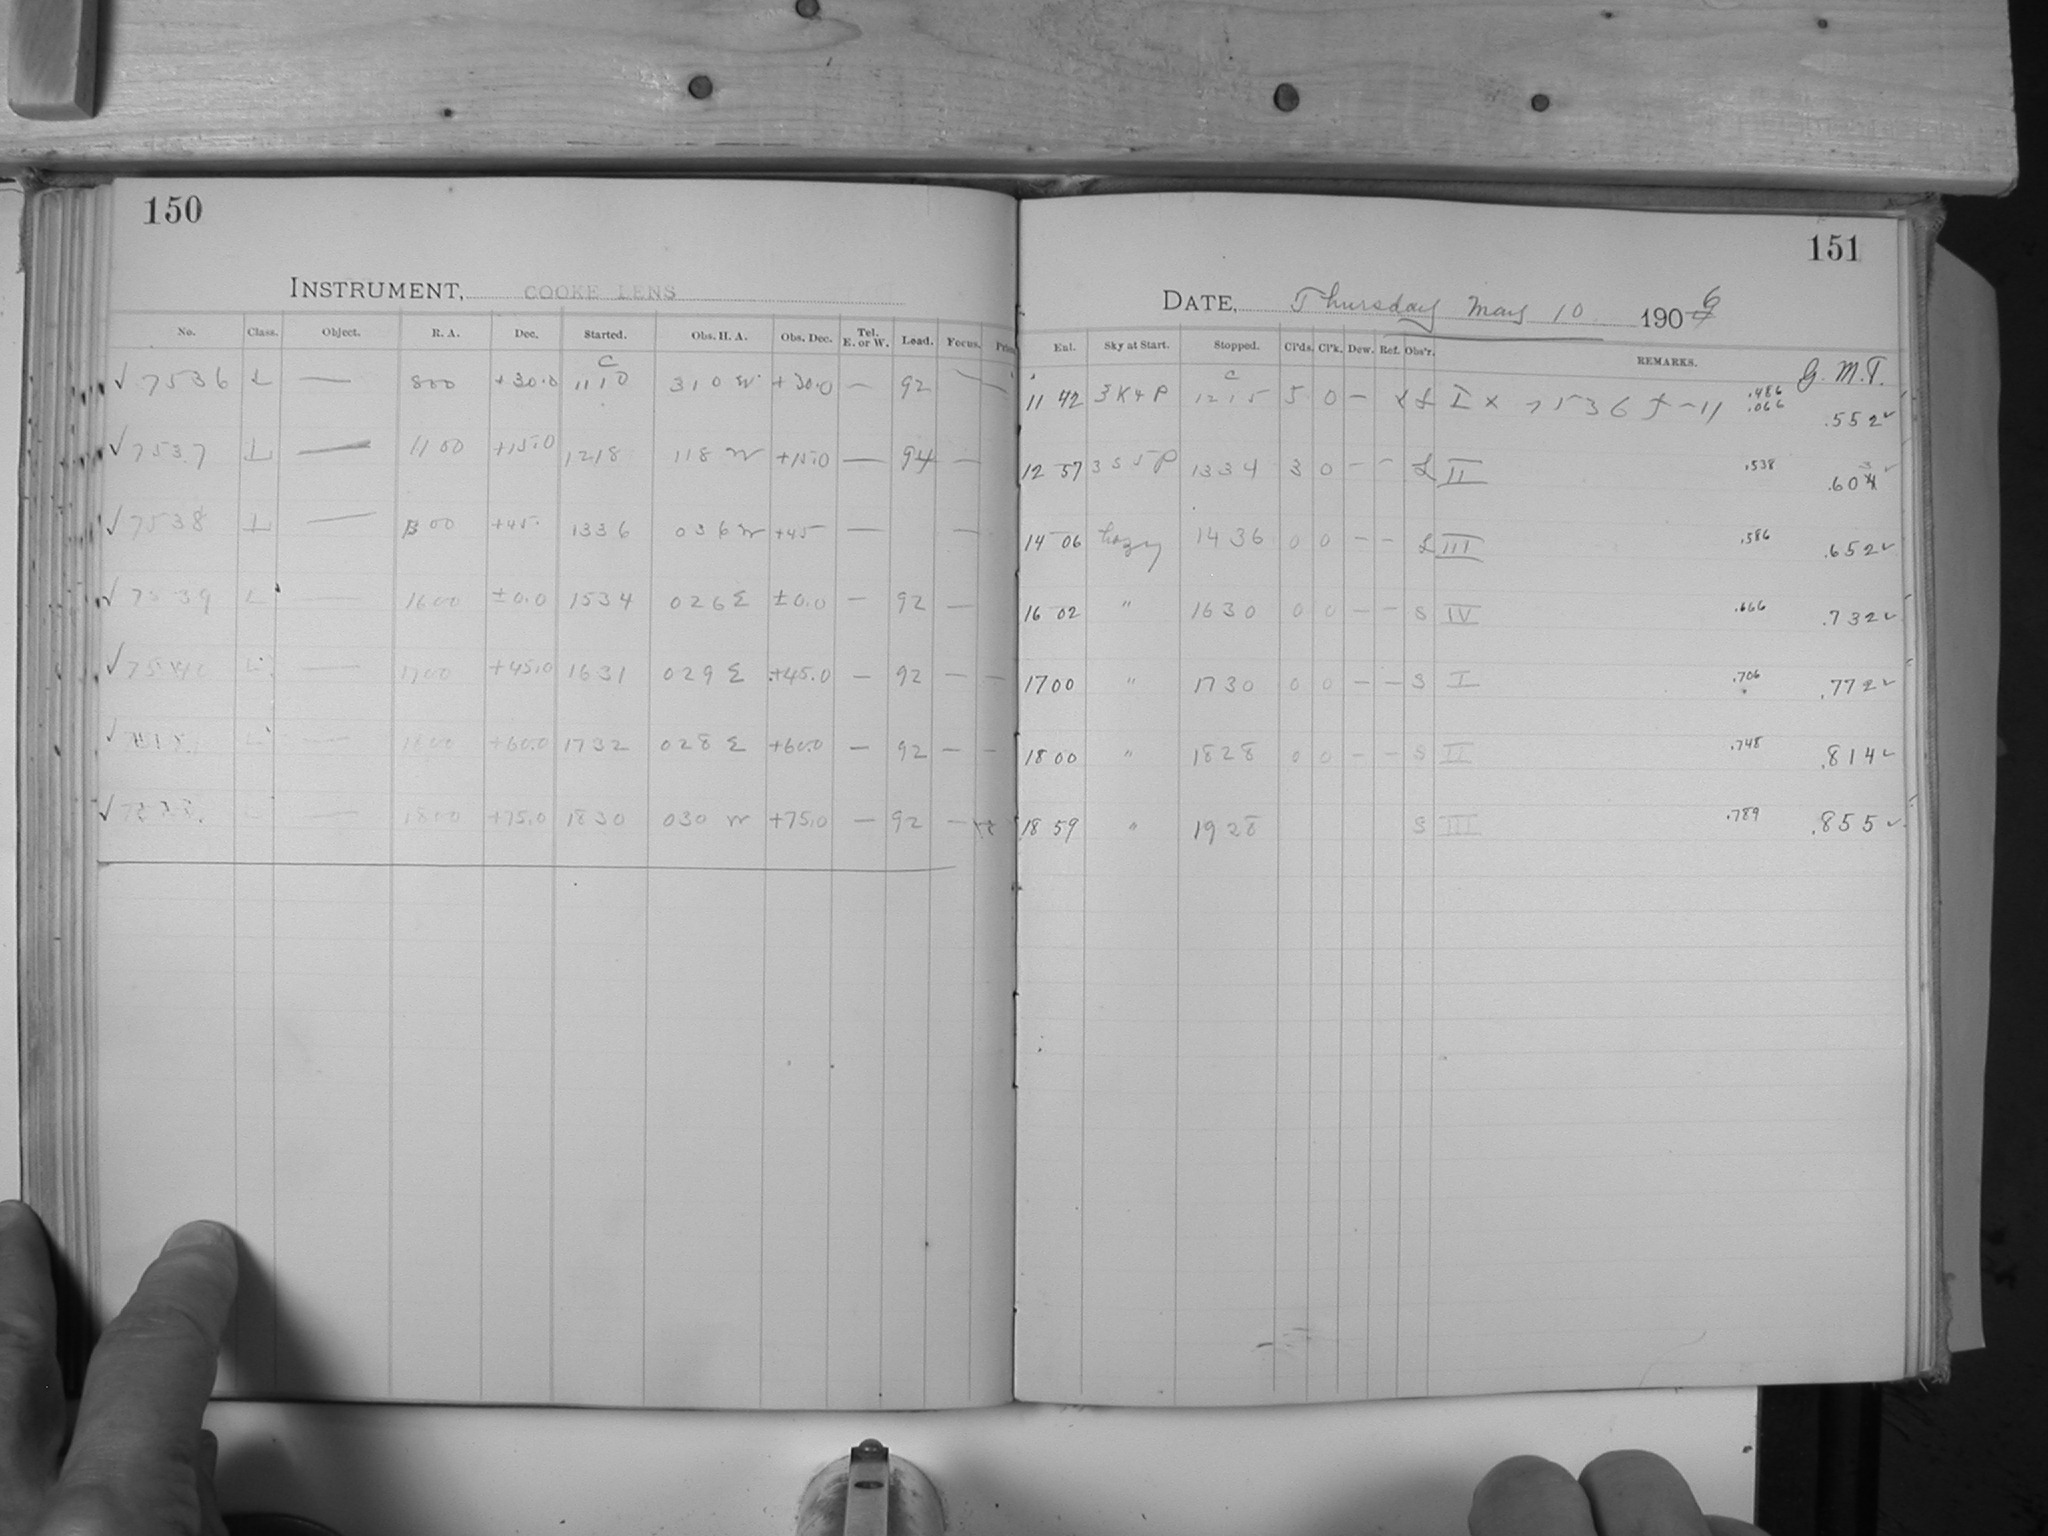 150
INSTRUMENT, COOKE LENS
No. Class. Object. R. A. Dec. Started. Obs. H. A. Obs. Dec. Tel. E. or W. Load. Focus.
√ 7536 L — 800 +30.0 1110 310 W +30.0 — 92
√ 7537 L — 1100 +15.0 1218 118 W +15.0 — 94 —
√ 7538 L — 1300 +45. 1336 036 W +45 — —
√ 7539 L — 1600 ±0.0 1534 026 E ±0.0 — 92 —
√ 7540 L — 1700 +45.0 1631 029 E +45.0 — 92 — —
√ L — 1800 +60.0 1732 028 E +60.0 — 92 — —
√ L — 1800 +75.0 1830 030 W +75.0 — 92 —
151
DATE, Thursday May 10 1906
Sky at Start. Stopped. Cl'ds. Cl'k. Dew. Ref. Obs'r. REMARKS. G. M. T.
11 42 1215 5 0 — L I × 7536 .486 .066 .552 ✓
12 57 1334 3 0 — — L II .538 .603 ✓
14 06 hazy 1436 0 0 — — L III .586 .652 ✓
16 02 " 1630 0 0 — — S IV .666 .732 ✓
1700 " 1730 0 0 — — S I .706 .772 ✓
18 00 " 1828 0 0 — — S II .748 .814 ✓
18 59 " 1928 S III .789 .855 ✓